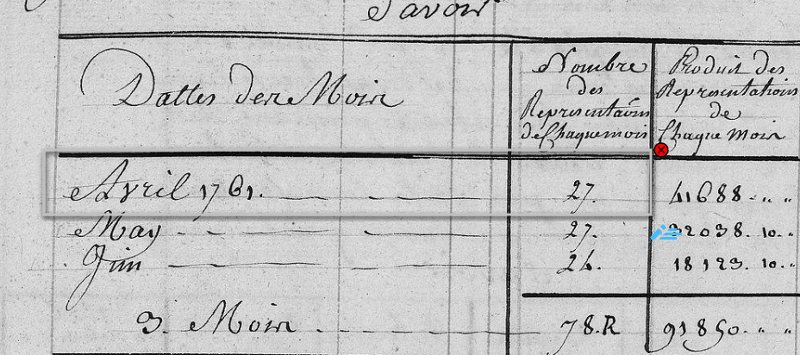 Savoir
Dattes des Mois
Nombre
des
Representaõns
de Chaque mois
Produit des
Representations
de
Chaque Mois
Avril 1761. 27. 41688. " "
May 27. 32038. 10. "
Juin 24. 18123. 10. "
3 Mois 78. R 91850. " "